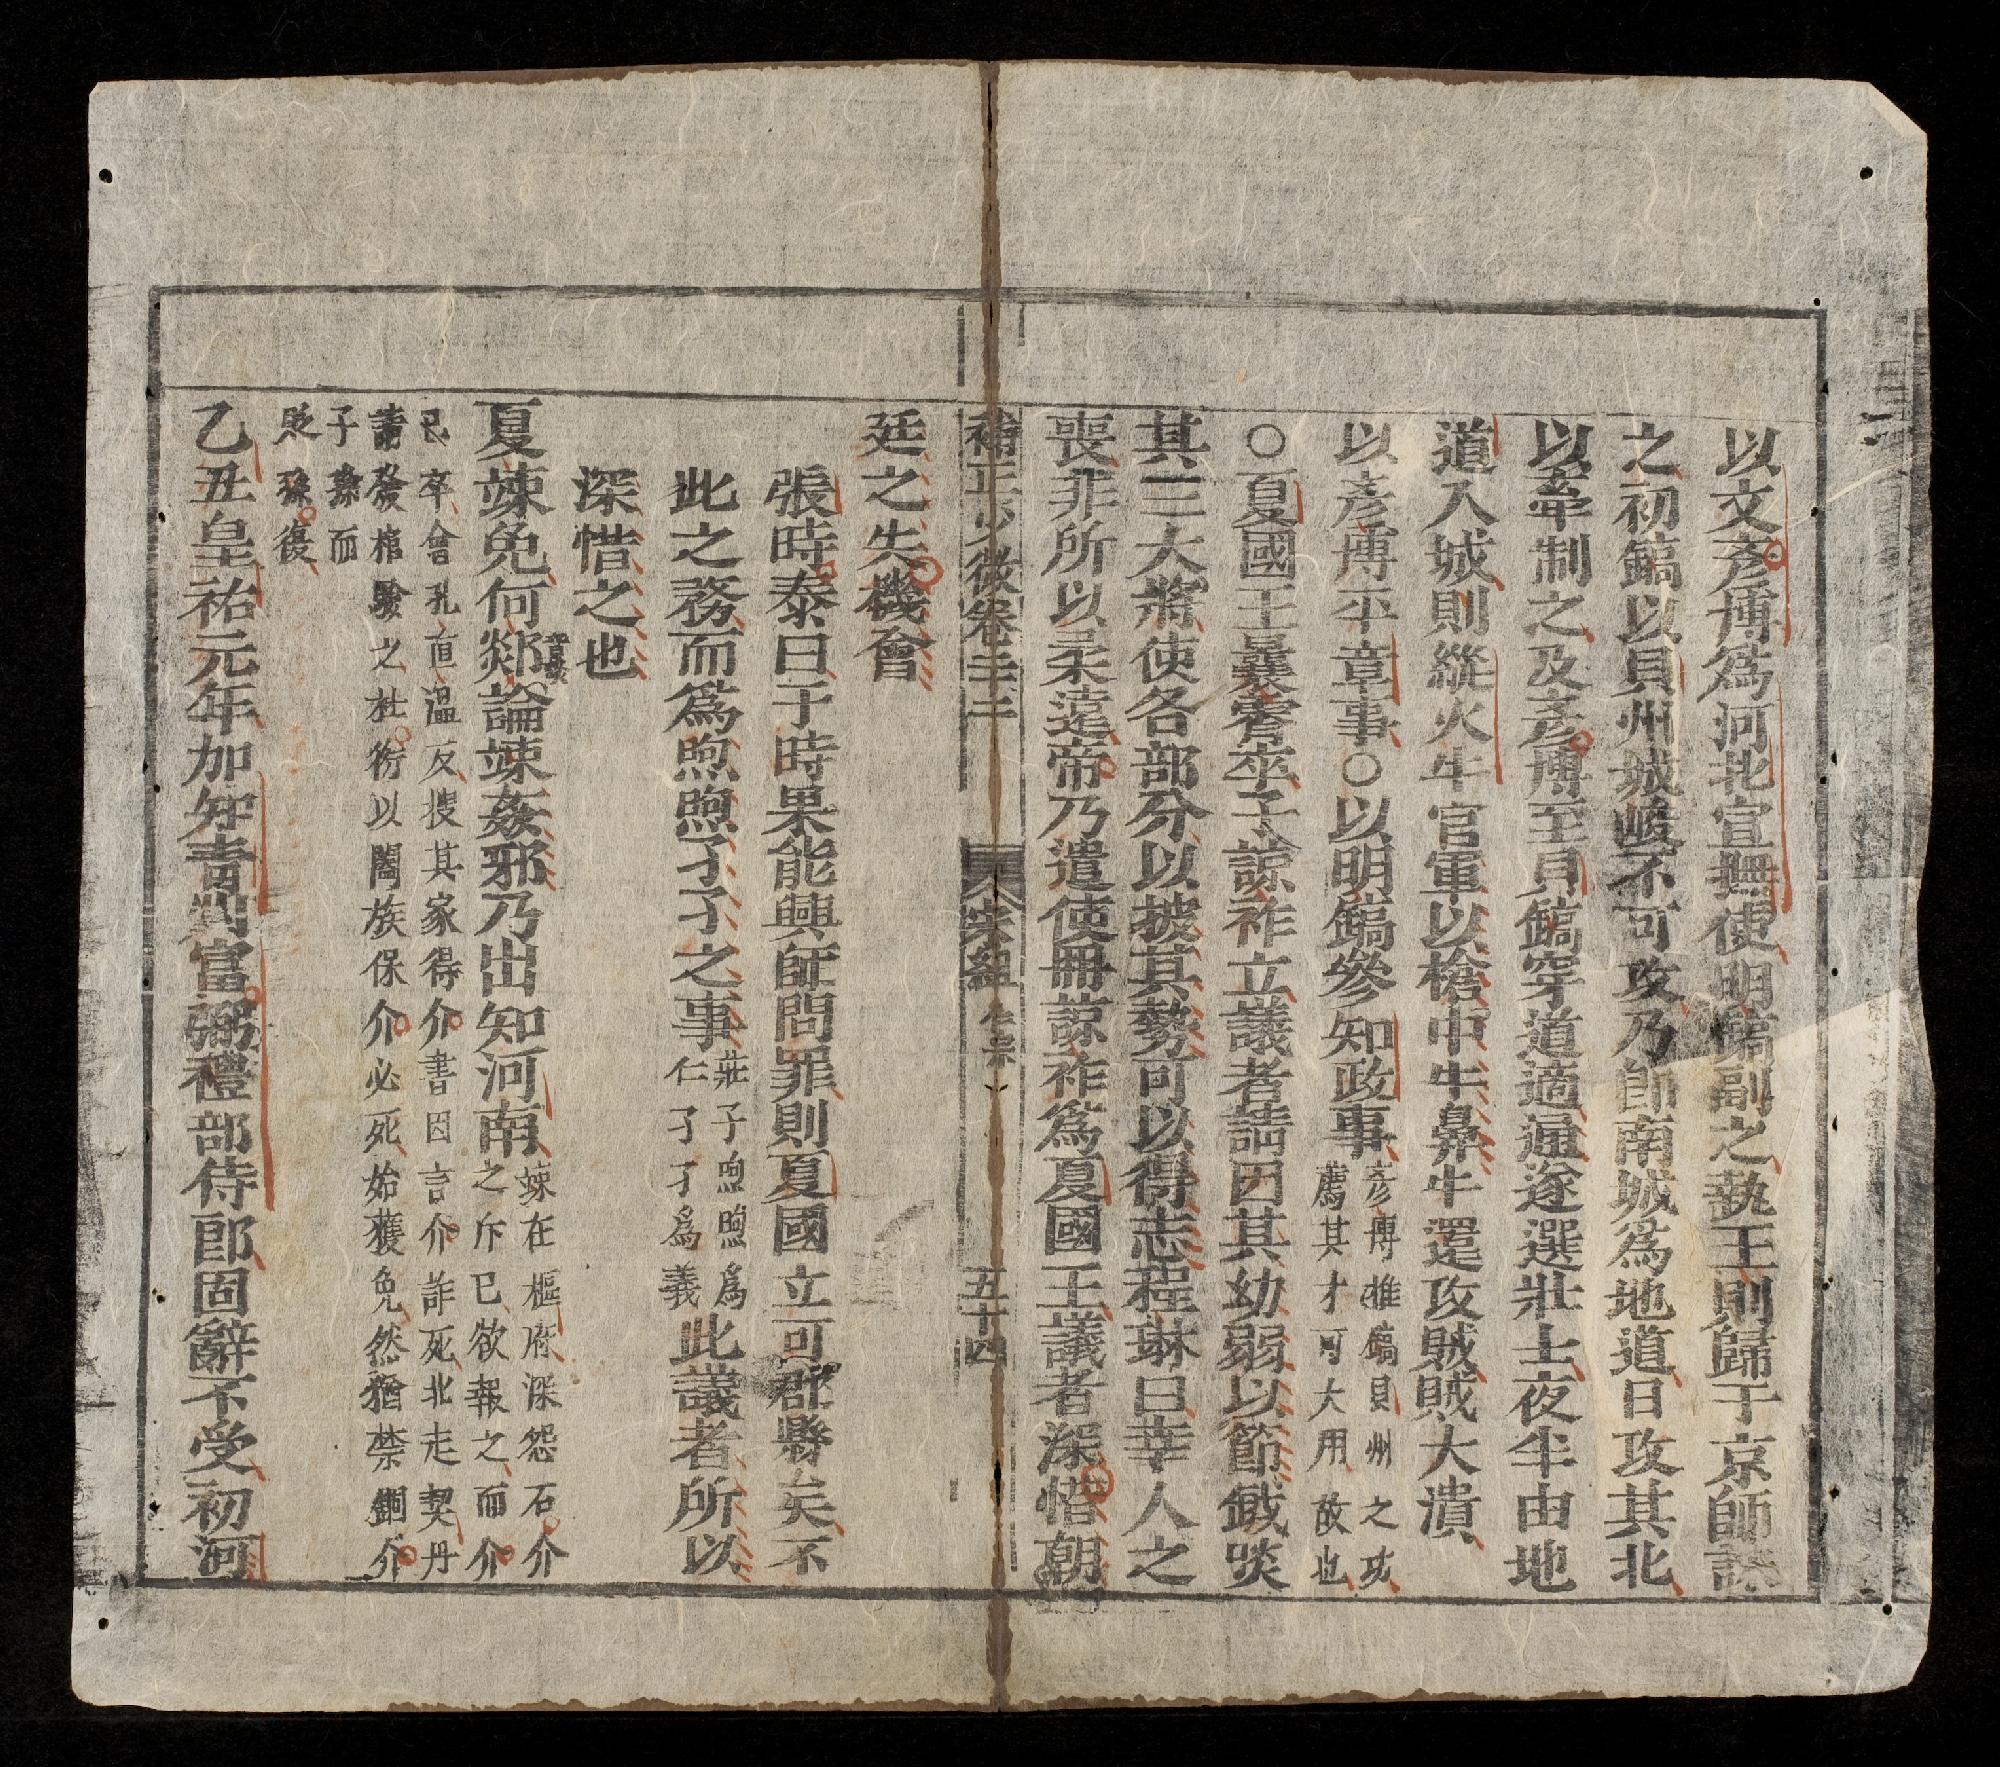 以文彥博爲河北宣撫使明鎬副之執王則歸于京師誅
之初鎬以貝州城峻不可攻乃即南城爲地道日攻其北
以牽制之及彥博至貝鎬穿道適通遂選壯士夜半由地
道入城則縱火牛官軍以槍中牛鼻牛還攻賊賊大潰
以彥博平章事○以明鎬參知政事彥博推鎬貝州之功
薦其才可大用故也
○夏國王曩霄卒子諒祚立議者請因其幼弱以節鉞啖
其三大將使各部分以披其勢可以得志程琳曰幸人之
喪非所以柔遠帝乃遣使冊諒祚爲夏國王議者深惜朝
補正少微卷三十二 宋紀 仁宗 五十四
廷之失機會
張時泰曰于時果能興師問罪則夏國立可郡縣矣不
此之務而爲煦煦孑孑之事莊子煦煦爲
仁孑孑爲義此議者所以
深惜之也
夏竦免何郯論竦姦邪乃出知河南竦在樞府深怨石介
之斥已欲報之而介
已卒會孔直溫反搜其家得介書因言介詐死北走契丹
請發棺驗之杜衍以闔族保介必死始獲免然猶禁錮介
子孫而
貶孫復
乙丑皇祐元年加知青州富弼禮部侍郎固辭不受初河